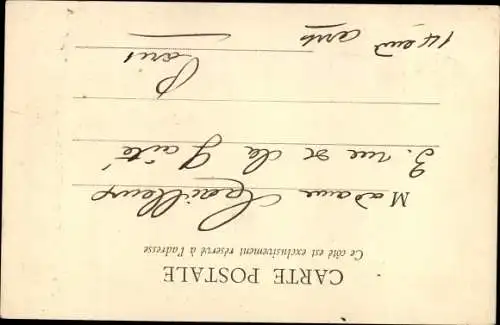 CARTE POSTALE
Ce côté est exclusivement réservé à l'adresse
Madame
3. rue de la Gaité
Paris
14